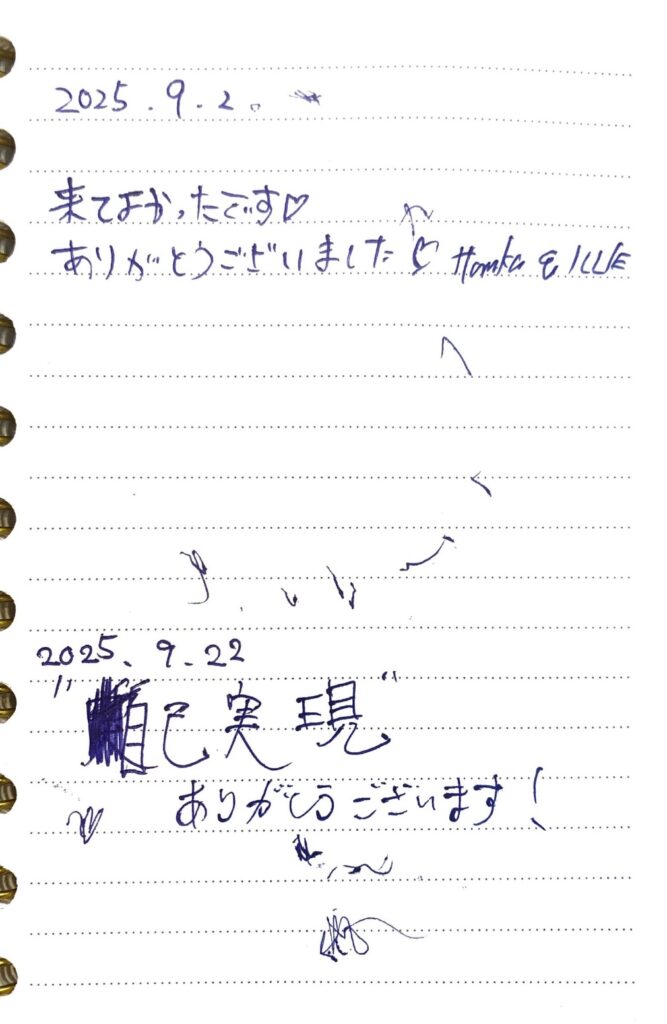 2025.9.2.
来てよかったでです♡
ありがとうございました♡
2025.9.22
"自己実現"
ありがとうございます!